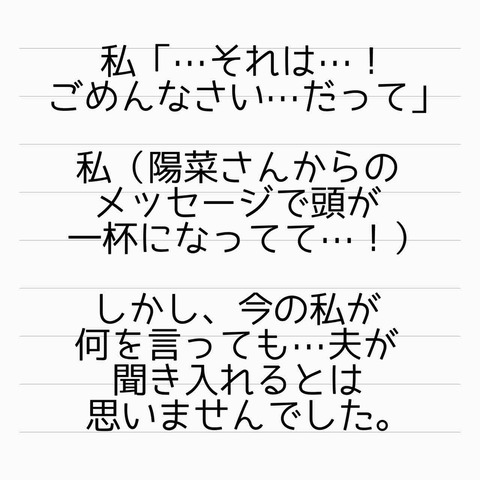 私「…それは…！
ごめんなさい…だって」
私（陽菜さんからの
メッセージで頭が
一杯になってて…！）
しかし、今の私が
何を言っても…夫が
聞き入れるとは
思いませんでした。